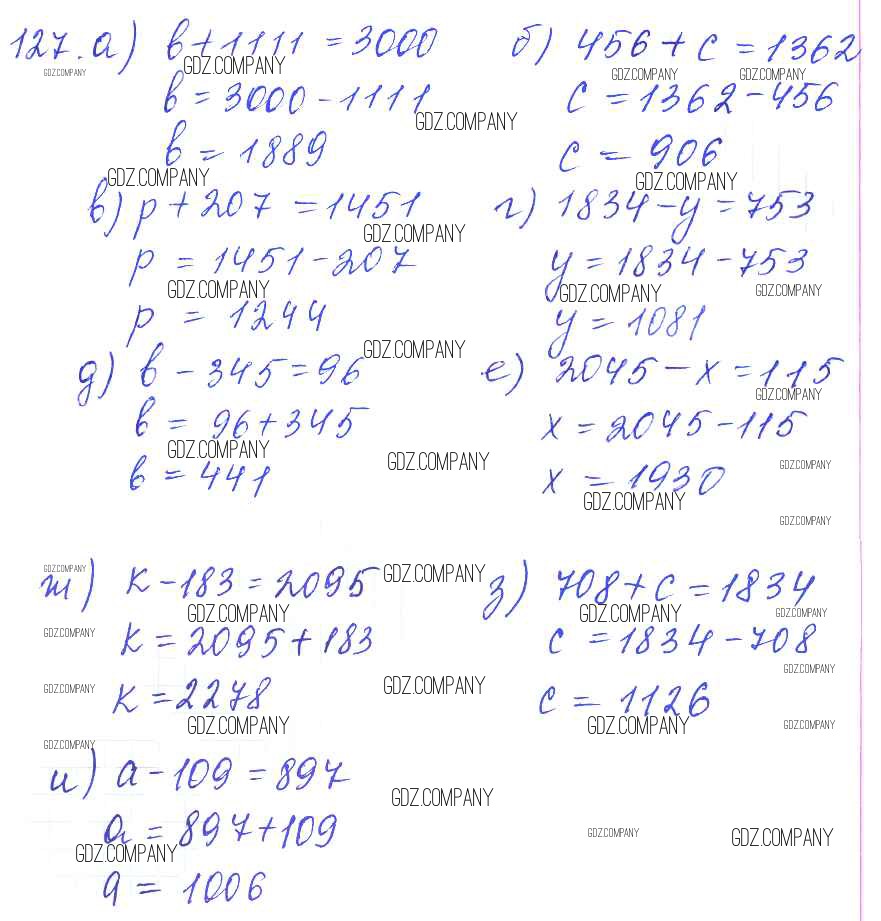 127. а) b + 1111 = 3000
GDZ.COMPANY
GDZ.COMPANY
b = 3000 - 1111
GDZ.COMPANY
b = 1889
GDZ.COMPANY
б) 456 + c = 1362
GDZ.COMPANY
GDZ.COMPANY
c = 1362 - 456
c = 906
GDZ.COMPANY
в) p + 207 = 1451
GDZ.COMPANY
p = 1451 - 207
GDZ.COMPANY
p = 1244
GDZ.COMPANY
г) 1834 - y = 753
y = 1834 - 753
GDZ.COMPANY
GDZ.COMPANY
y = 1081
д) b - 345 = 96
b = 96 + 345
GDZ.COMPANY
GDZ.COMPANY
b = 441
е) 2045 - x = 115
GDZ.COMPANY
x = 2045 - 115
GDZ.COMPANY
x = 1930
GDZ.COMPANY
GDZ.COMPANY
GDZ.COMPANY
ж) k - 183 = 2095
GDZ.COMPANY
GDZ.COMPANY
GDZ.COMPANY
k = 2095 + 183
GDZ.COMPANY
GDZ.COMPANY
k = 2278
GDZ.COMPANY
з) 708 + c = 1834
GDZ.COMPANY
GDZ.COMPANY
c = 1834 - 708
GDZ.COMPANY
c = 1126
GDZ.COMPANY
GDZ.COMPANY
GDZ.COMPANY
и) a - 109 = 897
GDZ.COMPANY
a = 897 + 109
GDZ.COMPANY
GDZ.COMPANY
GDZ.COMPANY
a = 1006